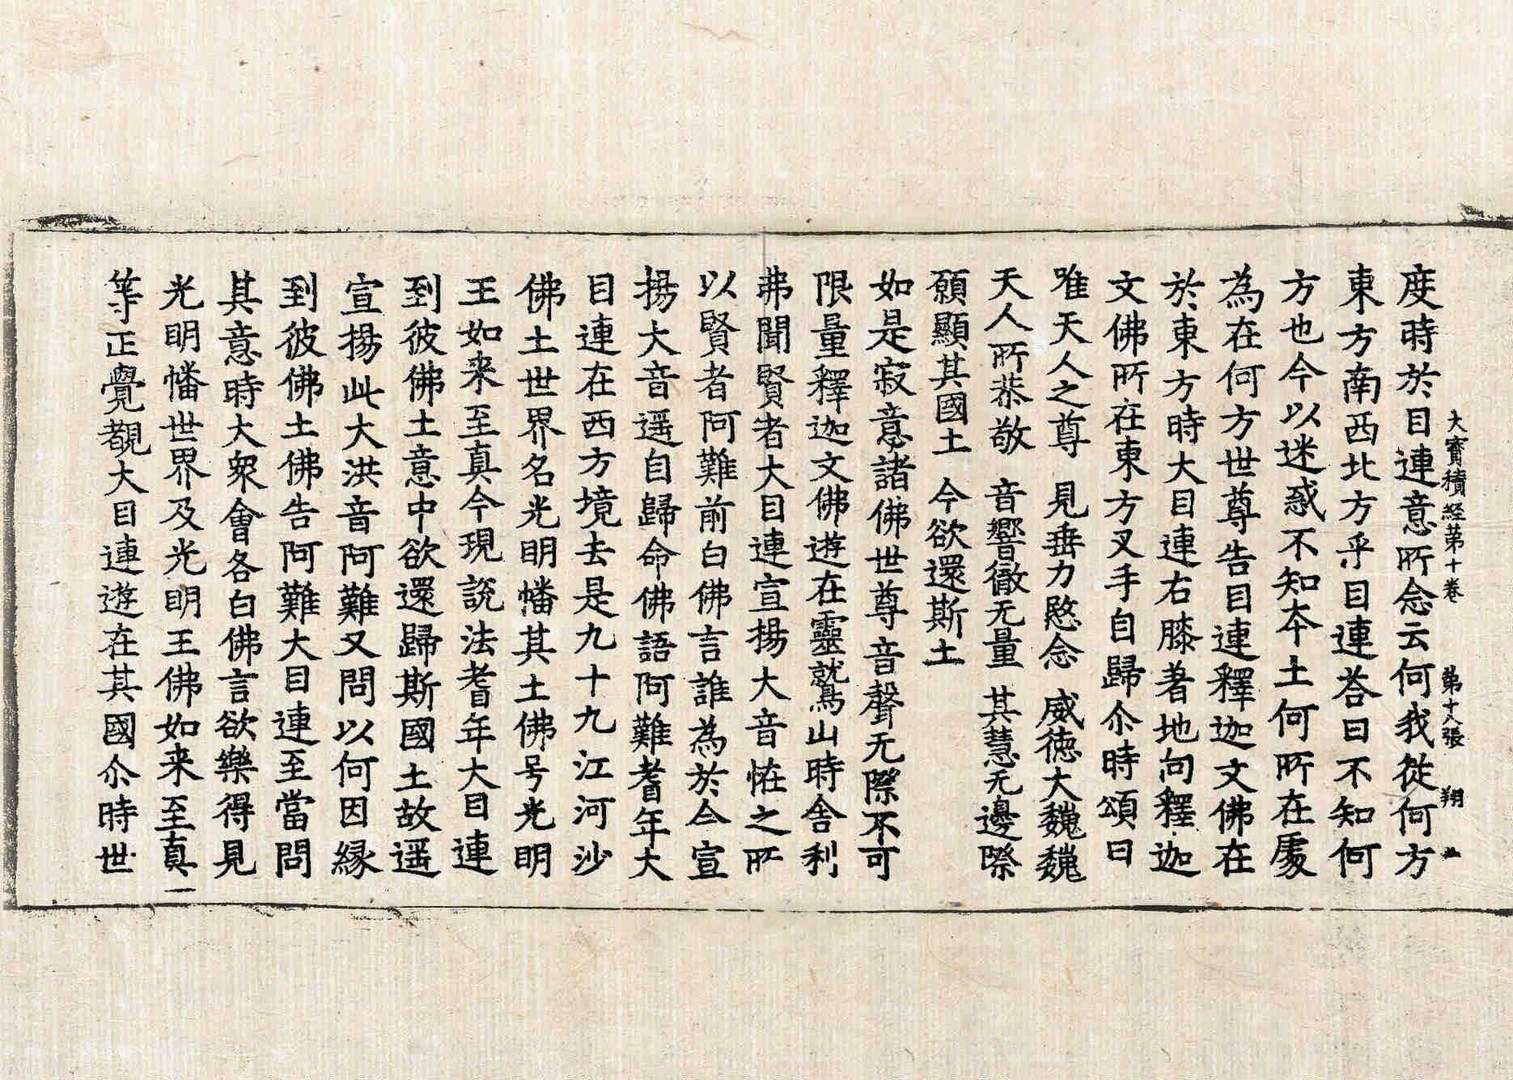 大寶積經第十卷 第十八張 翔
度時於目連意所念云何我從何方
東方南西北方乎目連荅曰不知何
方也今以迷惑不知夲土何所在𠁅
為在何方世尊告目連釋迦文佛在
於東方時大目連右膝著地向釋迦
文佛所在東方叉手自歸尒時頌曰
唯天人之尊 見垂力愍念 威德大巍巍
天人所恭敬 音響徹无量 其慧无邊際
願顯其國土 今欲還斯土
如是寂意諸佛世尊音聲无際不可
限量釋迦文佛遊在靈鷲山時舍利
弗聞賢者大目連宣揚大音恠之所
以賢者阿難前白佛言誰為於今宣
揚大音遥自歸命佛語阿難耆年大
目連在西方境去是九十九江河沙
佛土世界名光明幡其土佛号光明
王如来至真今現說法耆年大目連
到彼佛土意中欲還歸斯國土故遥
宣揚此大洪音阿難又問以何因緣
到彼佛土佛告阿難大目連至當問
其意時大衆會各白佛言欲樂得見
光明幡世界及光明王佛如来至真
等正覺覩大目連遊在其國尒時世